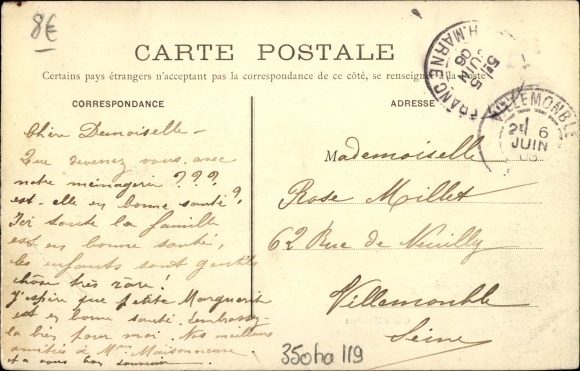 8€
CARTE POSTALE
Certains pays étrangers n'acceptant pas la correspondance de ce côté, se renseigner à la Poste
CORRESPONDANCE
ADRESSE
H. MARNE
5 JUIN 06
VILLEMOMBLE
6
JUIN
06
Chère Demoiselle -
Que devenez vous, avec
notre ménagerie ???
est-elle en bonne santé ?
Ici toute la famille
est en bonne santé,
les enfants sont gentils
chose très rare !
J'espère que petite Marguerite
est en bonne santé. Embrassez-
la bien pour moi. Nos meilleurs
amitiés à Mme Maisonneuve
et a vous bon souvenir
Mademoiselle
Rose Millet
62 Rue de Neuilly
Villemomble
Seine
350ha 119